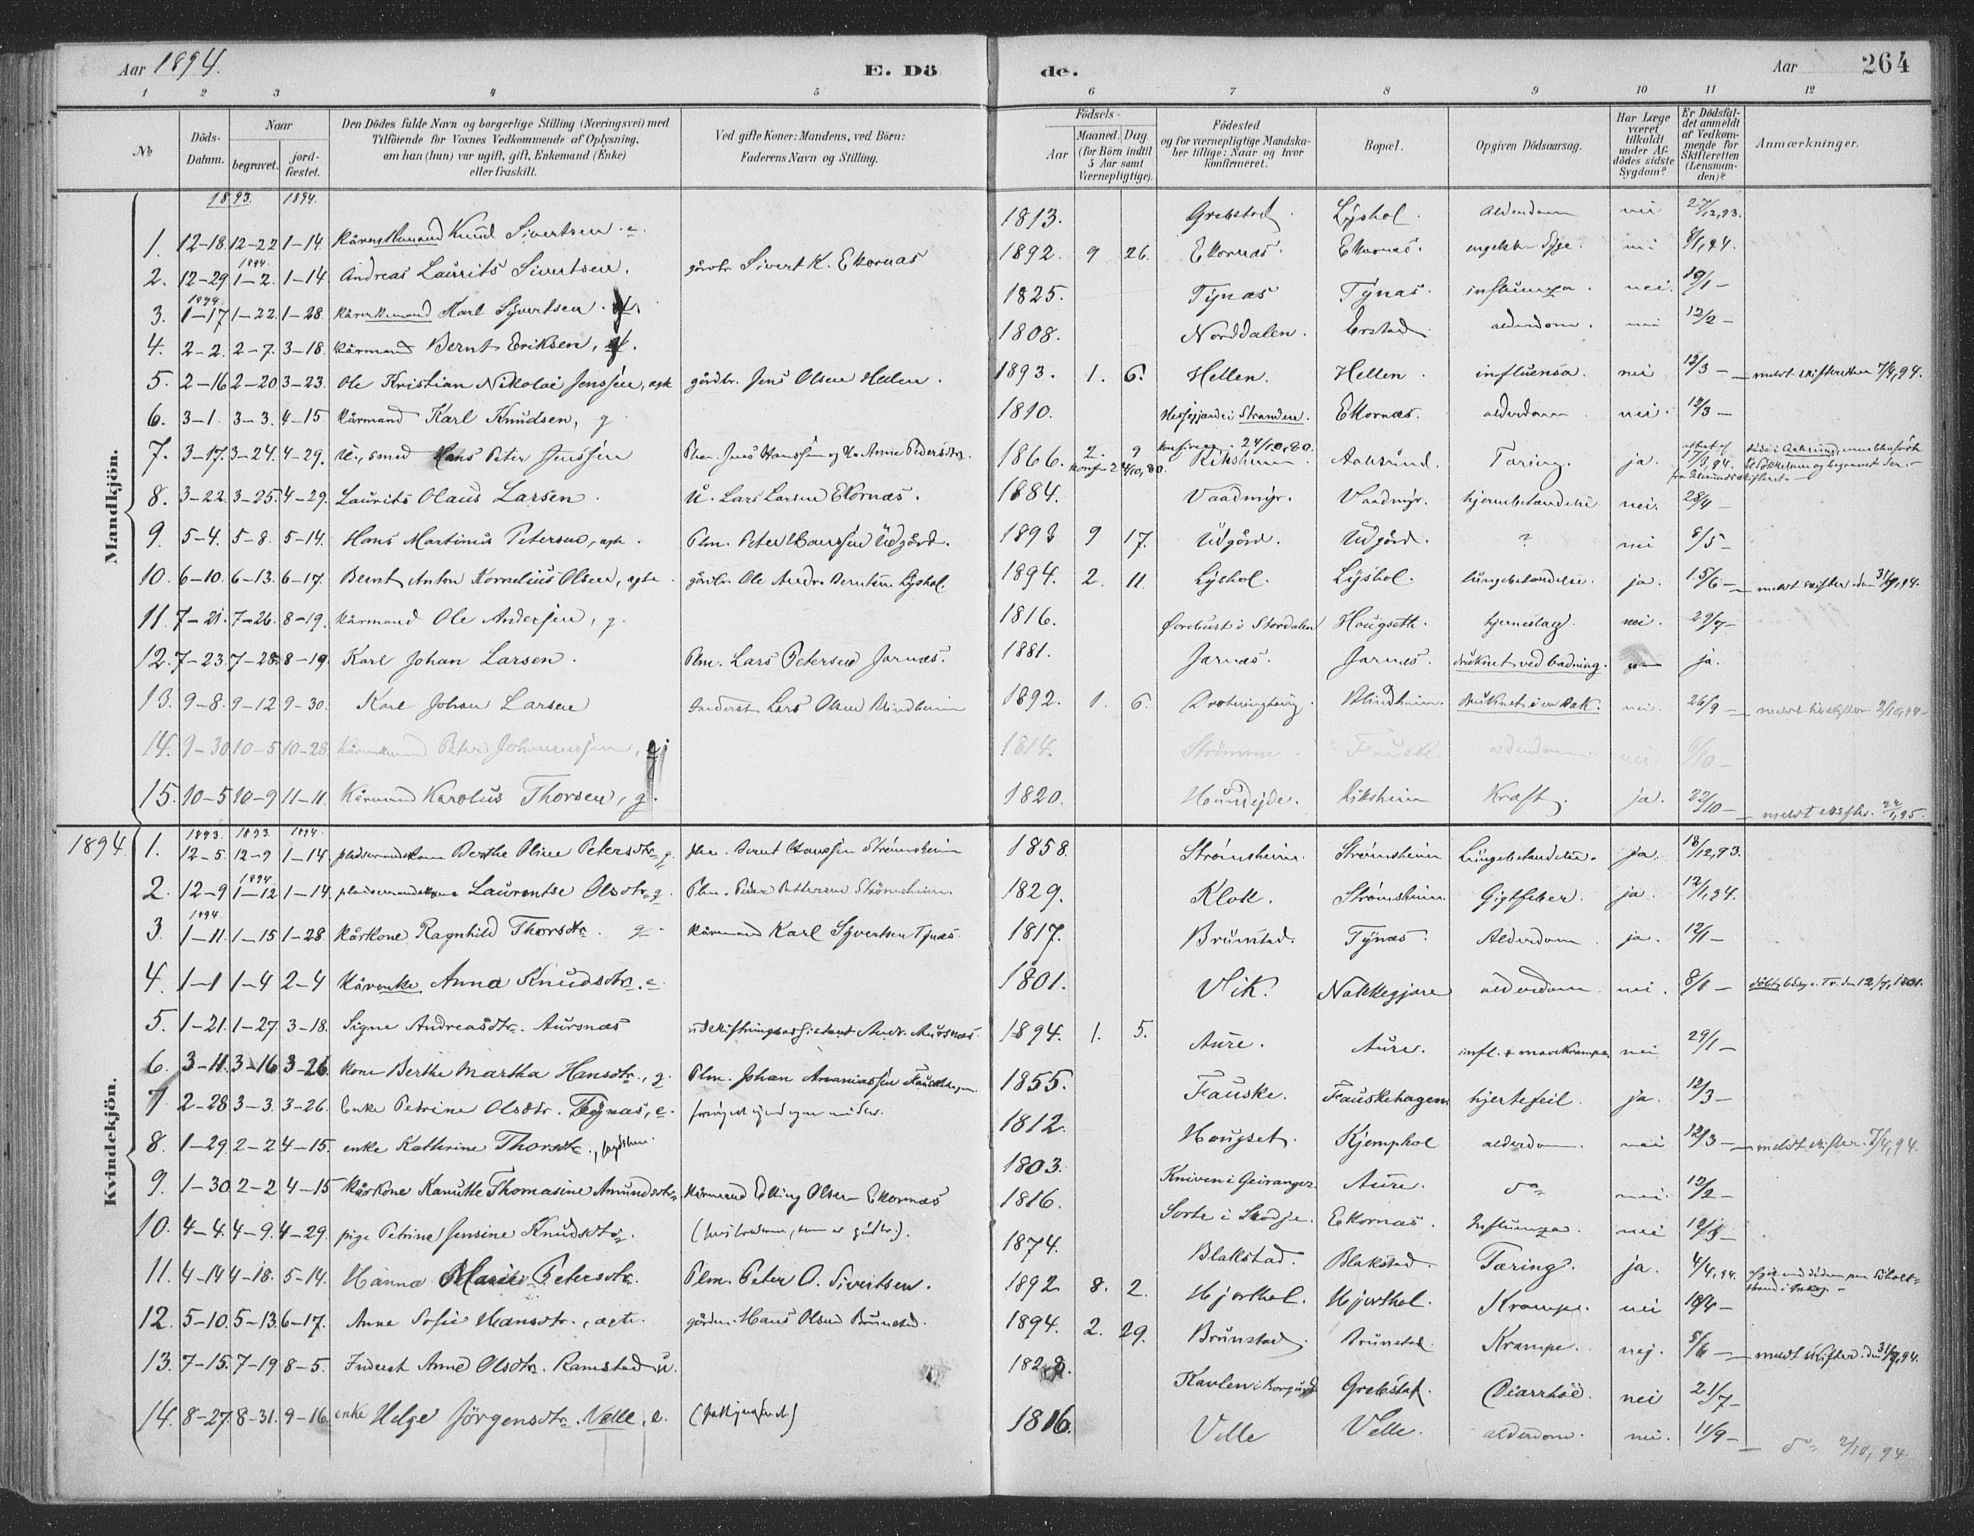 Aar 1894.
E. Dö
de.
Aar
264
1 2 3 4 5 6 7 8 9 10 11 12
No
Döds-Datum.
Naar
begravet.
jord-fæstet.
Den Dödes fulde Navn og borgerlige Stilling (Næringsvei) med
Tilföiende for Voxnes Vedkommende af Oplysning,
om han (hun) var ugift, gift, Enkemand (Enke)
eller fraskilt.
Ved gifte Koner: Mandens, ved Börn:
Faderens Navn og Stilling.
Födsels-
Aar
Maaned. Dag.
(for Börn indtil 5 Aar samt Værnepligtige).
Födested
og for værnepligtige Mandska-
ber tillige: Naar og hvor
konfirmeret.
Bopæl.
Opgiven Dödsaarsag.
Har Læge været tilkaldt under Af-dödes sidste Sygdom?
Er Dödsfal-det anmeldt af Vedkom-mende for Skifteretten (Lensman-den)?
Anmærkninger.
Mandkjön.
1893. 1894.
1. 12-18. 12-22 1-14. Kårenkemand Knud Sivertsen. e. 1813. Grebstad. Lyshol. Alderdom nei 27/12,93.
1894.
2. 12-29 1-2. 1-14 Andreas Laurits Sivertsen. gårdbr. Sivert K. Ekornæs 1892. 9 26. Ekornæs. Ekornæs. engelske Syge. nei 8/1,94.
1894.
3. 1-17 1-22. 1-28. Kårenkemand Karl Syvertsen. 1825. Tynæs Tynæs. influenza. nei. 19/1-
4. 2-2. 2-7. 3-18. Kårmand Bernt Eriksen, 1808. Norddalen. Erstad. alderdom. nei 12/2-
5. 2-16 2-20. 3-23. Ole Kristian Nikolai Jenssen, ægte gårdbr. Jens Olsen Hellen. 1893. 1. 6. Hellen. Hellen. influensa. nei 12/3- meldt skifteretten 7/4,94.
6. 3-1. 3-3. 4-15. Kårmand Karl Knudsen, g 1810. i Strandene. Ekornæs. alderdom nei. 12/3-
7. 3-17. 3-24. 4-29. U., smed Hans Peter Jenssen Plm. Jens Hanssen og Anne Pedersdtr. 1866. 2. 9 24/10,80. Riksheim. Aalesund. Tæring. ja.
8. 3-22. 3-25. 4-29. Laurits Olaus Larsen. U. Lars Larsen Ekornæs. 1884. Vaadmyr. Vaadmyr. hjernebetændelse nei. 28/4-
9. 5-4. 5-8. 5-14. Hans Martinus Petersen, ægte. Plm. Peter Hanssen Udgård. 1893 9 17. Udgård. Udgård. ? nei 8/5-
10. 6-10. 6-13. 6-17. Bernt Anton Kornelius Olsen, ægte. gårdbr. Ole Andr. Berntsen Lyshol. 1894. 2. 11. Lyshol. Lyshol. lungebetændelse. ja. 15/6-
11. 7-21. 7-26. 8-19. Kårmand Ole Andersen, g. 1816. Ørebust i Stordalen Hougseth. hjerneslag. nei. 29/7-
12. 7-23. 7-28. 8-19. Karl Johan Larsen. Plm. Lars Petersen Jarnæs. 1881. Jarnæs. Jarnæs. druknet ved badning. ja.
13. 9-8. 9-12 9-30. Karl Johan Larsen Inderst Lars Olsen Blindheim 1892. 1. 6. Blindheim. nei. 26/9-
14. 9-30 10-5 10-28 Peter Johannessen, 1814. Strømme Fauske alderdom. nei 6/10-
15. 10-5 10-9 11-11. Kårmand Karolus Thorsen, g. 1820. Hundeide. Riksheim Kræft. ja. 22/10-
Kvindekjön.
1894
1893. 1893. 1894.
1. 12-5 12-9 1-14 pladsemandskone Berthe Oline Petersdtr. g. Plm. Bernt Hanssen Strømsheim 1858. Strømsheim. Strømsheim Lungebetændelse. ja. 18/12,93.
1894
2. 12-9 1-12 1-14. pladsemandskone Laurentse Olsdtr. g. Plm. Peder Pettersen Strømsheim. 1829. Klok. Strømsheim Gigtfeber. ja. 12/1,94.
1894.
3 1-11. 1-15 1-28 Kårkone Ragnhild Thorsdtr. g. Kårmand Karl Syvertsen Tynæs. 1817. Brunstad. Tynæs. Alderdom ja. 12/1-
4. 1-1 1-4 2-4 Kårenke Anna Knudsdtr. e. 1801. Vik. Nakkegjære alderdom nei. 8/1-
5. 1-21. 1-27. 3-18. Signe Andreasdtr. Aursnæs udskiftningsassistent Andr. Aursnæs. 1894. 1. 5. Aure. Aure. infl. & mavekrampe nei 29/1-
6. 3-11. 3-16 3-26. kone Berthe Martha Hansdtr., g. Plm. Johan Ananiassen Fauskehagen. 1855. Fauske. Fauskehagen hjertefeil. ja. 12/3-
7 2-28 3-3. 3-26. Enke Petrine Olsdtr. Tynæs, e. 1812. Hougset. Kjemphol alderdom. nei 12/3- meldt skifter. 7/4,94.
8. 1-29. 2-2 4-15. enke Kathrine Thorsdtr., 1803. Kniven i Geiranger. Aure. do nei. 12/2-
9. 1-30. 2-2 4-15 Kårkone Kanutte Thomasine Amundsdtr. Kårmand Edling Olsen Ekornæs 1816. Sorte i Skodje. Ekornæs. Influenza. nei
10. 4-4. 4-9. 4-29. pige Petrine Jensine Knudsdtr. 1874. Blakstad. Blakstad. Tæring. ja. 4/4,94.
11. 4-14 4-18. 5-14. Hanna Marie Petersdtr. Plm. Peter O. Sivertsen. 1892. 8. 2. Hjorthol. Hjorthol. Krampe. nei 18/4-
12. 5-10. 5-13. 6-17. Anne Sofie Hansdtr., ægte. gårdm. Hans Olsen Brunstad. 1894. 2. 29. Brunstad. Brunstad. Krampe. nej. 5/6-
13. 7-15. 7-19 8-5. Inderst Anne Olsdtr. Ramstad u. Grebstad. Diarrhöe. nei 21/7-
14. 8-27. 8-31. 9-16. enke Helge Jörgensdtr. Velle, e. 1816. Velle Velle. alderdom. nei. 11/9- do 2/10,94.